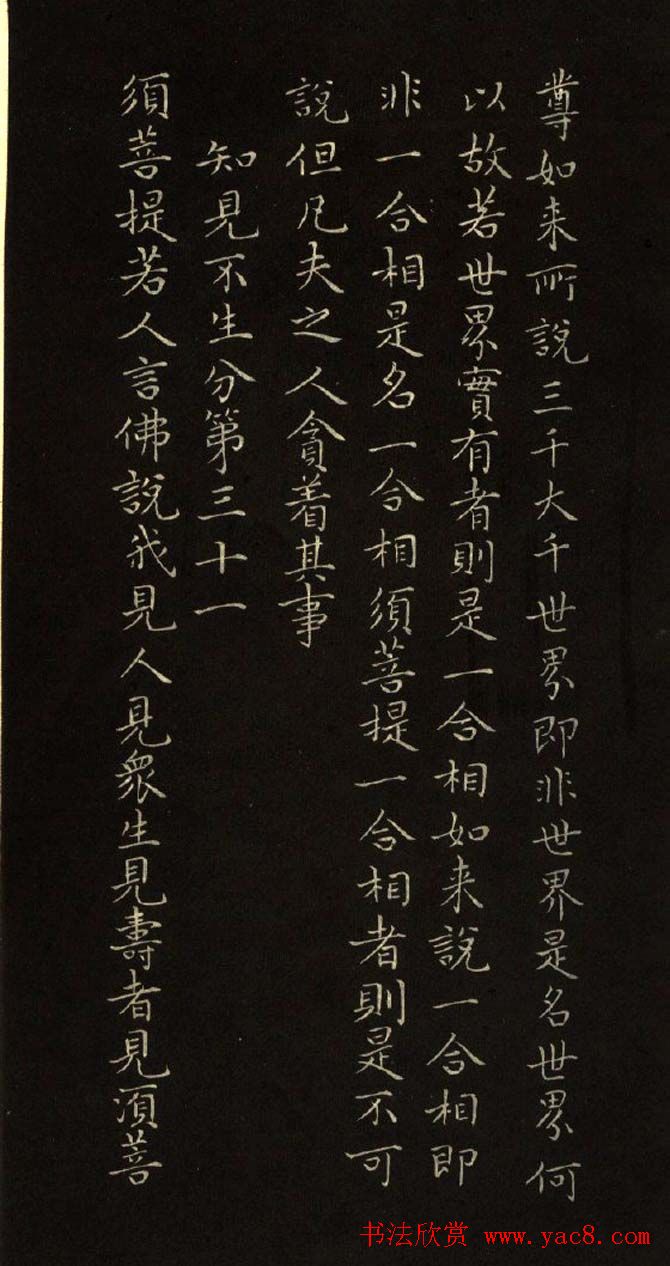 尊如来所說三千大千世界即非世界是名世界何
以故若世界實有者則是一合相如来說一合相即
非一合相是名一合相須菩提一合相者則是不可
說但凡夫之人貪着其事
知見不生分第三十一
須菩提若人言佛說我見人見衆生見壽者見須菩
书法欣赏 www.yac8.com